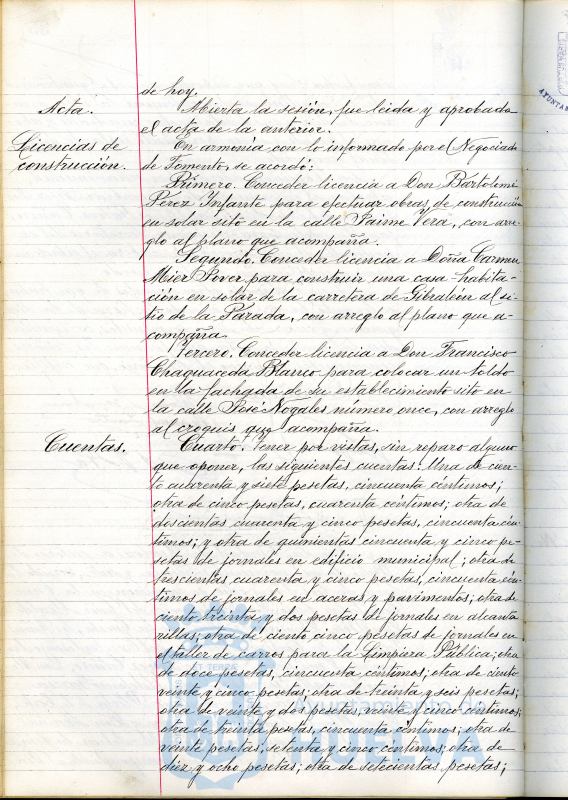 de hoy.
Acta.
Abierta la sesión, fue leída y aprobada
el acta de la anterior.
Licencias de
construcción.
En armonía con lo informado por el Negociado
de Fomento, se acordó:
Primero. Conceder licencia a Don Bartolomé
Pérez Infante para efectuar obras de construcción
en solar sito en la calle Jaime Vera, con arre-
glo al plano que acompaña.
Segundo. Conceder licencia a Doña Carmen
Mier Pover para construir una casa-habita-
ción en solar de la carretera de Gibraleón al si-
tio de la Parada, con arreglo al plano que a-
compaña.
Tercero. Conceder licencia a Don Francisco
Chaguaceda Blanco para colocar un toldo
en la fachada de su establecimiento sito en
la calle José Nogales número once, con arreglo
al croquis que acompaña.
Cuentas.
Cuarto. Tener por vistas, sin reparo alguno
que oponer, las siguientes cuentas: Una de cien-
to cuarenta y siete pesetas, cincuenta céntimos;
otra de cinco pesetas, cuarenta céntimos; otra de
doscientas cuarenta y cinco pesetas, cincuenta cén-
timos; y otra de quinientas cincuenta y cinco pe-
setas de jornales en edificio municipal; otra de
trescientas cuarenta y cinco pesetas, cincuenta cén-
timos de jornales en aceras y pavimentos; otra de
ciento treinta y dos pesetas de jornales en alcanta-
rillas; otra de ciento cinco pesetas de jornales en
el taller de carros para la Limpieza Pública; otra
de doce pesetas, cincuenta céntimos; otra de ciento
veinte y cinco pesetas; otra de treinta y seis pesetas;
otra de veinte y dos pesetas, veinte y cinco céntimos;
otra de treinta pesetas, cincuenta céntimos; otra de
veinte pesetas, setenta y cinco céntimos; otra de
diez y ocho pesetas; otra de setecientas pesetas;